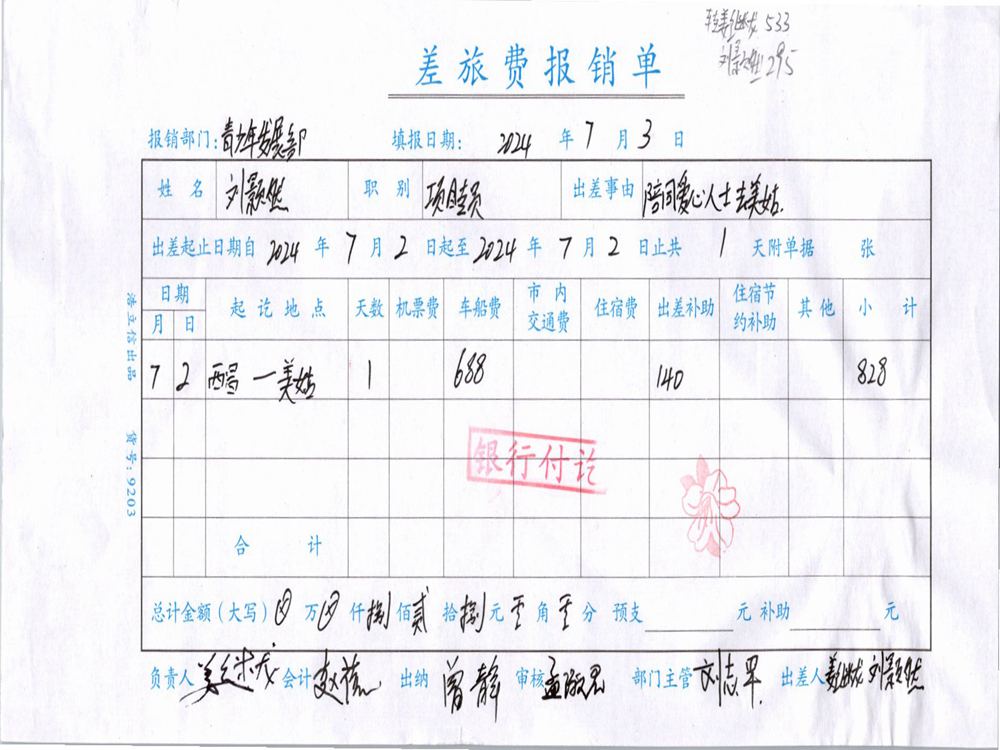 533
295
差旅费报销单
报销部门:青少年发展部 填报日期: 2024 年 7 月 3 日
姓名 刘颢然 职别 项目专员 出差事由 陪同爱心人士去美姑.
出差起止日期自 2024 年 7 月 2 日起至 2024 年 7 月 2 日止共 1 天附单据 张
日期 起讫地点 天数 机票费 车船费 市内交通费 住宿费 出差补助 住宿节约补助 其他 小计
月 日
7 2 西昌—美姑 1 688 140 828
银行付讫
合计
总计金额(大写) 万 仟 捌 佰 贰 拾 捌 元 零 角 零 分 预支 元 补助 元
负责人 会计 出纳 曾静 审核 部门主管 刘志军 出差人
浩立信出品 货号:9203